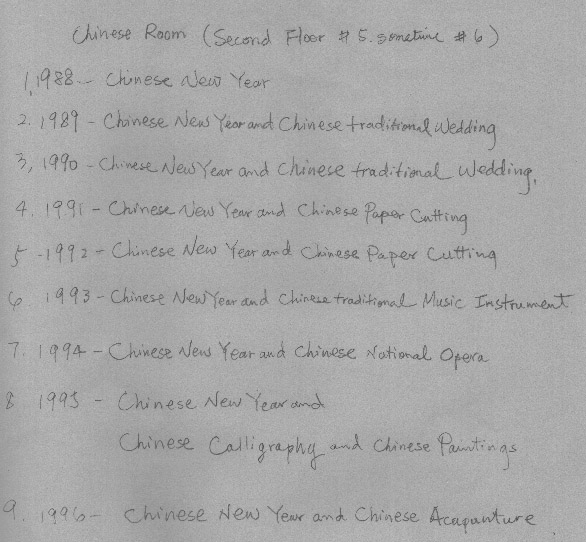 Chinese Room (Second Floor # 5. sometime # 6)
1, 1988 - Chinese New Year
2. 1989 - Chinese New Year and Chinese traditional Wedding
3, 1990 - Chinese New Year and Chinese traditional Wedding.
4. 1991 - Chinese New Year and Chinese Paper Cutting
5 - 1992 - Chinese New Year and Chinese Paper Cutting
6. 1993 - Chinese New Year and Chinese traditional Music Instrument
7. 1994 - Chinese New Year and Chinese National Opera
8 1995 - Chinese New Year and
Chinese Calligraphy and Chinese Paintings
9. 1996 - Chinese New Year and Chinese Acapunture